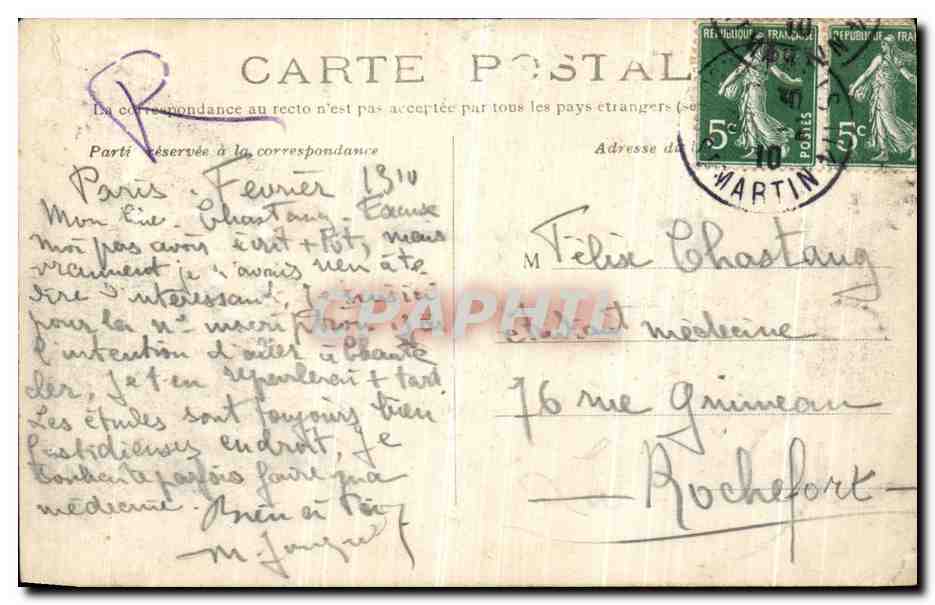 CARTE POSTALE
La correspondance au recto n'est pas acceptée par tous les pays étrangers
Partie réservée à la correspondance
Adresse du
R
RÉPUBLIQUE FRANÇAISE
5c
POSTES
RÉPUBLIQUE FRA
5c
10
MARTIN
Paris. Février 1910
Mon Cher Chastang. Excuse
moi pas avoir écrit + tôt, mais
vraiment je n'avais rien à te
dire d'intéressant. Je suis ici
pour la inscription. J'ai
l'intention d'aller à Chante
cler, je t'en reparlerai + tard
Les études sont toujours bien
fastidieuses en droit, je
souhaite parfois faire ma
médecine. Bien à Toi
M.
M Félix Chastang
étudiant médecine
76 rue Grimeau
Rochefort
CPAPHIL